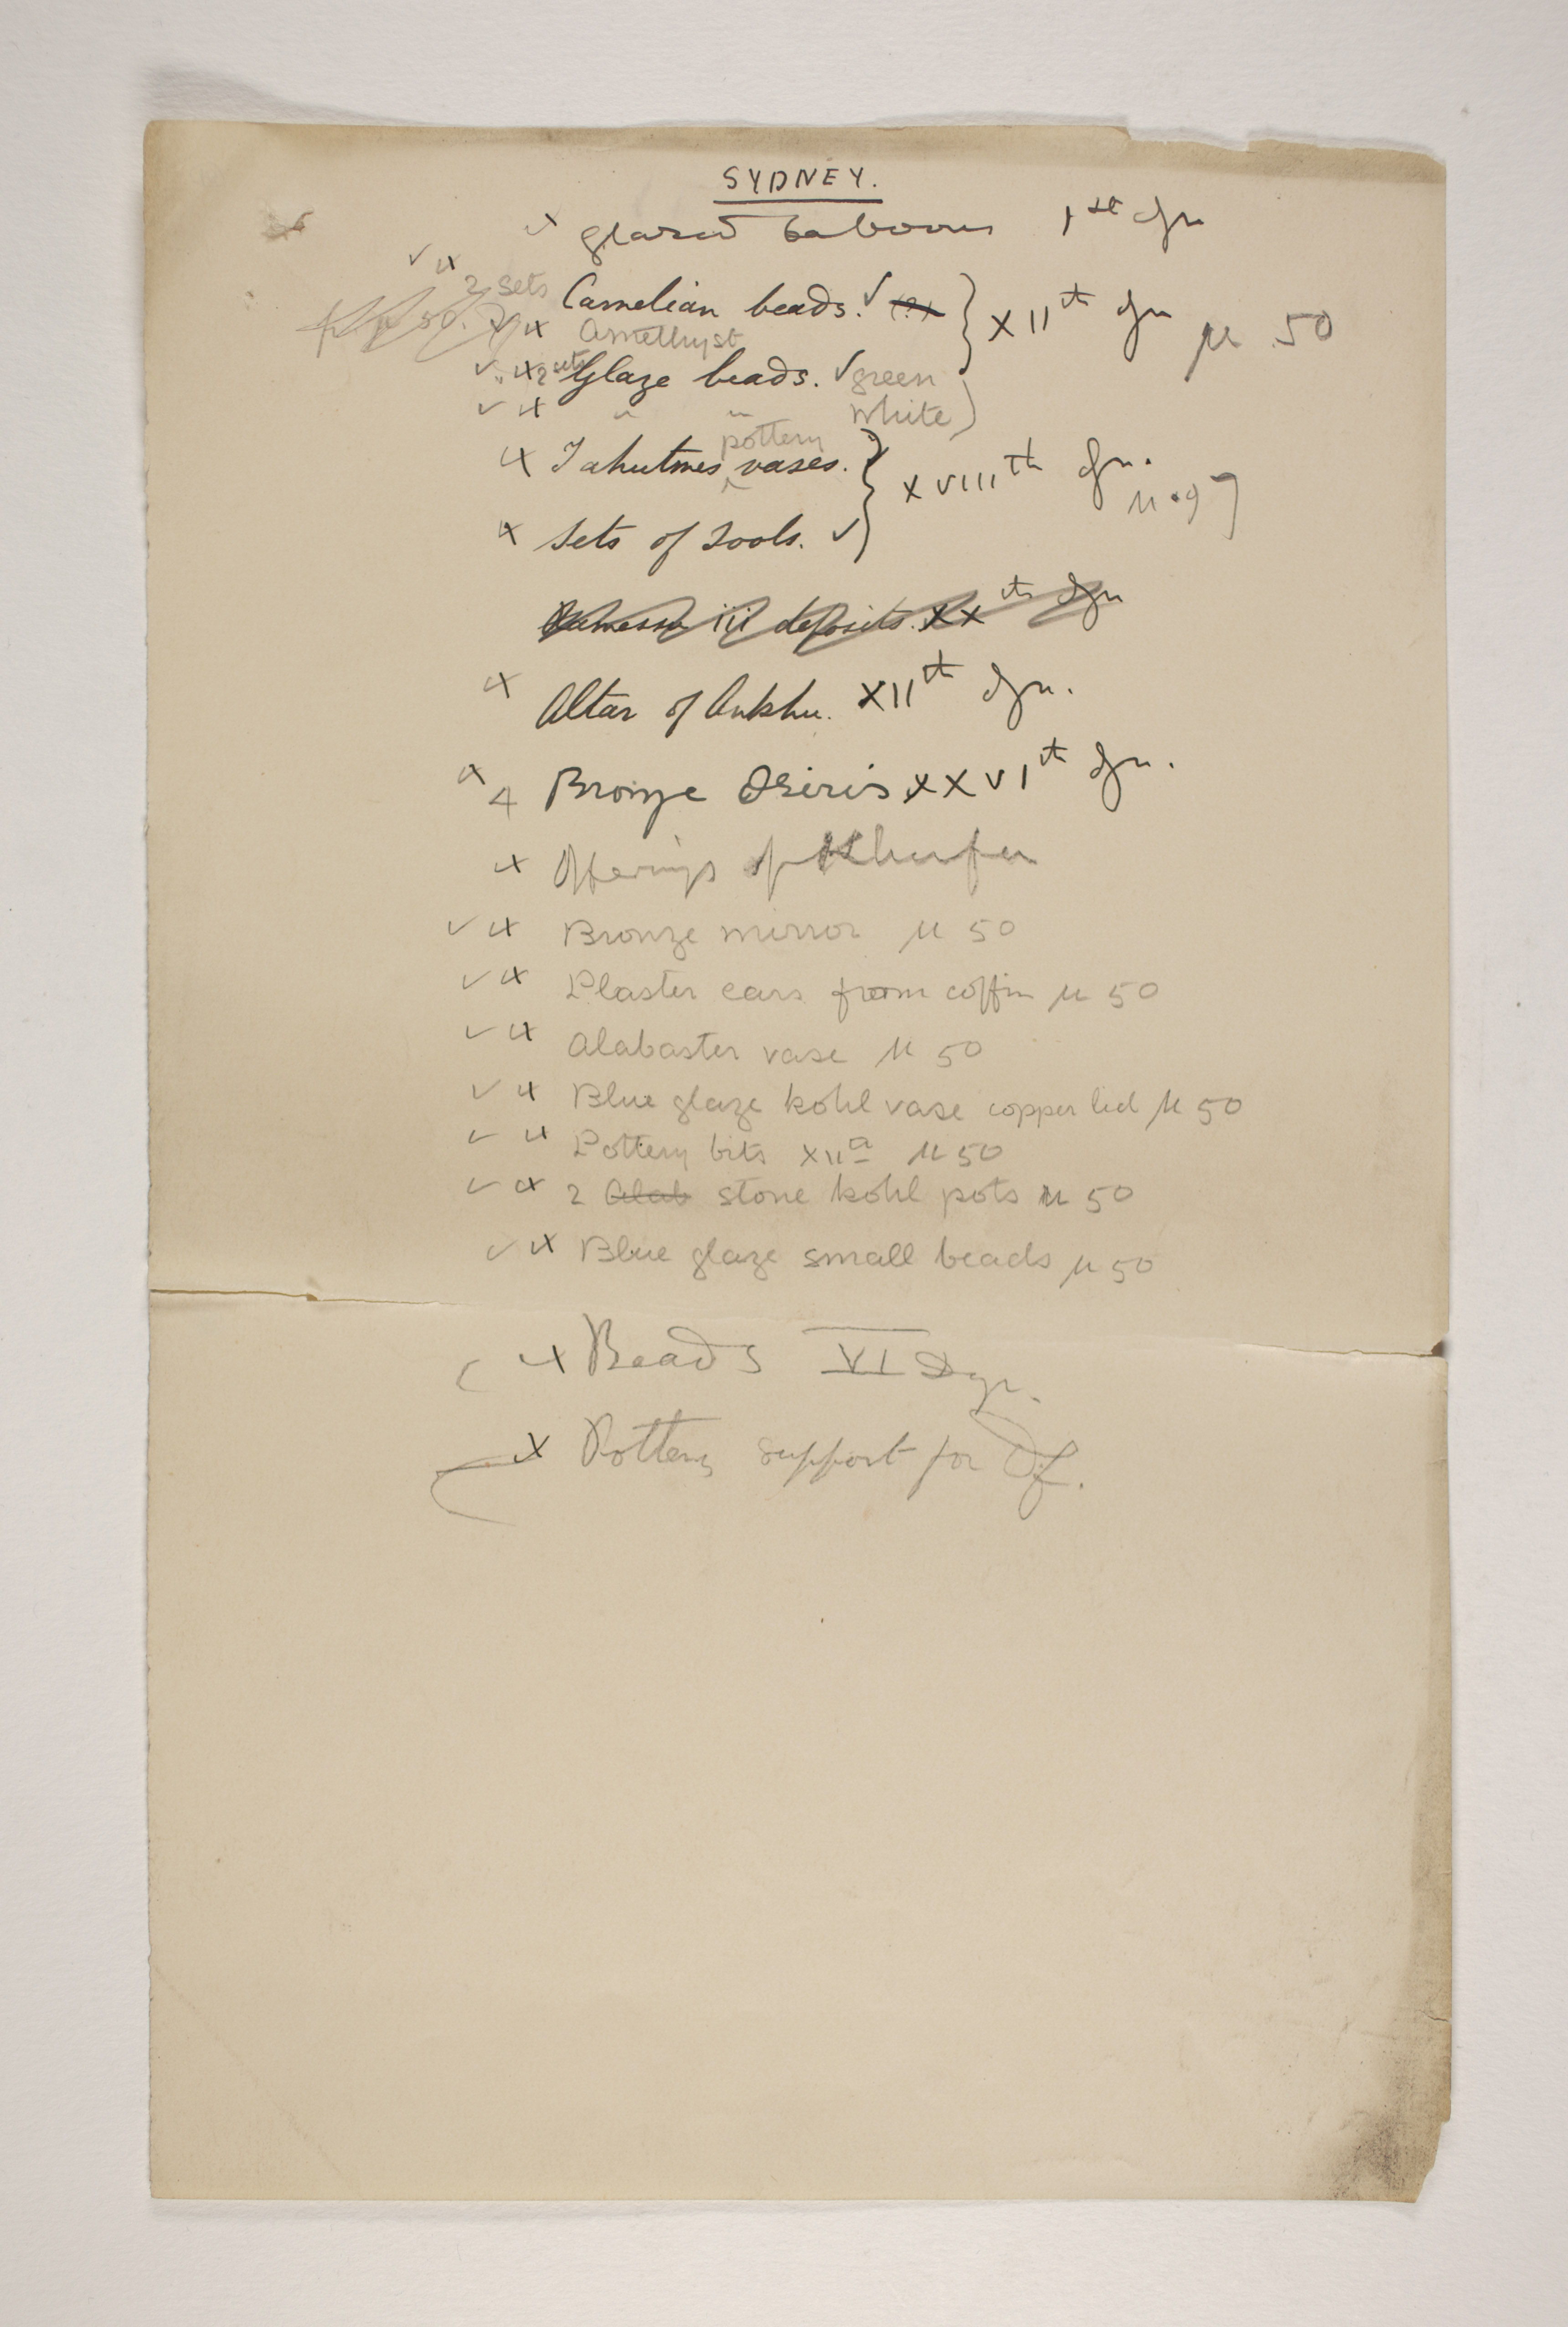 SYDNEY.
x glazed baboons 1st dyn
✓ x 2 sets Carnelian beads. ✓ } XIIth dyn µ 50
✓ x Amethyst
✓ x 2 sets Glaze beads. ✓ green
✓ x " " White )
x Tahutmes pottery vases. } XVIIIth dyn. µ . 97
x Sets of Tools. ✓ }
Ramessu iii deposits. XXth dyn
x Altar of Ankhu. XIIth dyn.
x 4 Bronze Osiris XXVIth dyn.
x Offerings of Khufu
✓ x Bronze mirror µ 50
✓ x Plaster ears from coffin µ 50
✓ x Alabaster vase µ 50
✓ x Blue glaze kohl vase copper lid µ 50
✓ x Pottery bits XIIa µ 50
✓ x 2 Alab stone kohl pots µ 50
✓ x Blue glaze small beads µ 50
x Beads VI Dyn.
x Pottery support for